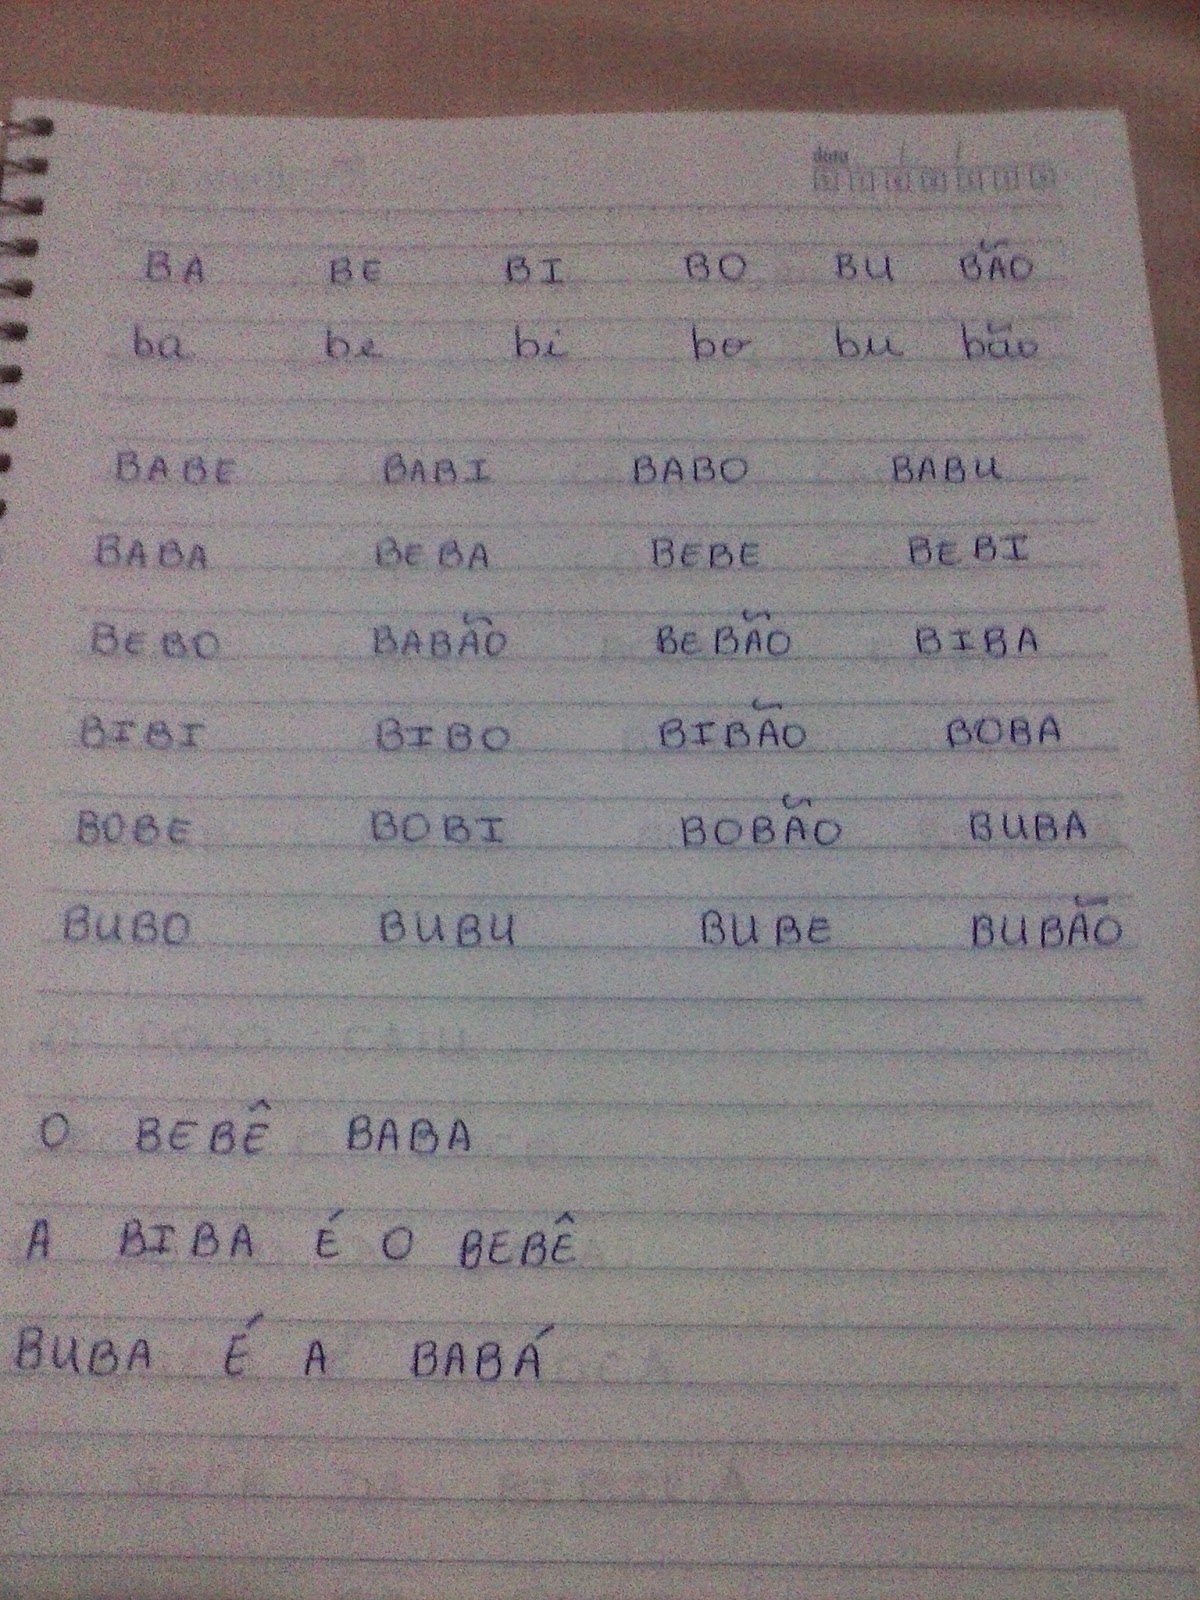 data
BA BE BI BO BU BÃO
ba be bi bo bu bão
BABE BABI BABO BABU
BABA BEBA BEBE BEBI
BEBO BABÃO BEBÃO BIBA
BIBI BIBO BIBÃO BOBA
BOBE BOBI BOBÃO BUBA
BUBO BUBU BUBE BUBÃO
O BEBÊ BABA
A BIBA É O BEBÊ
BUBA É A BABÁ